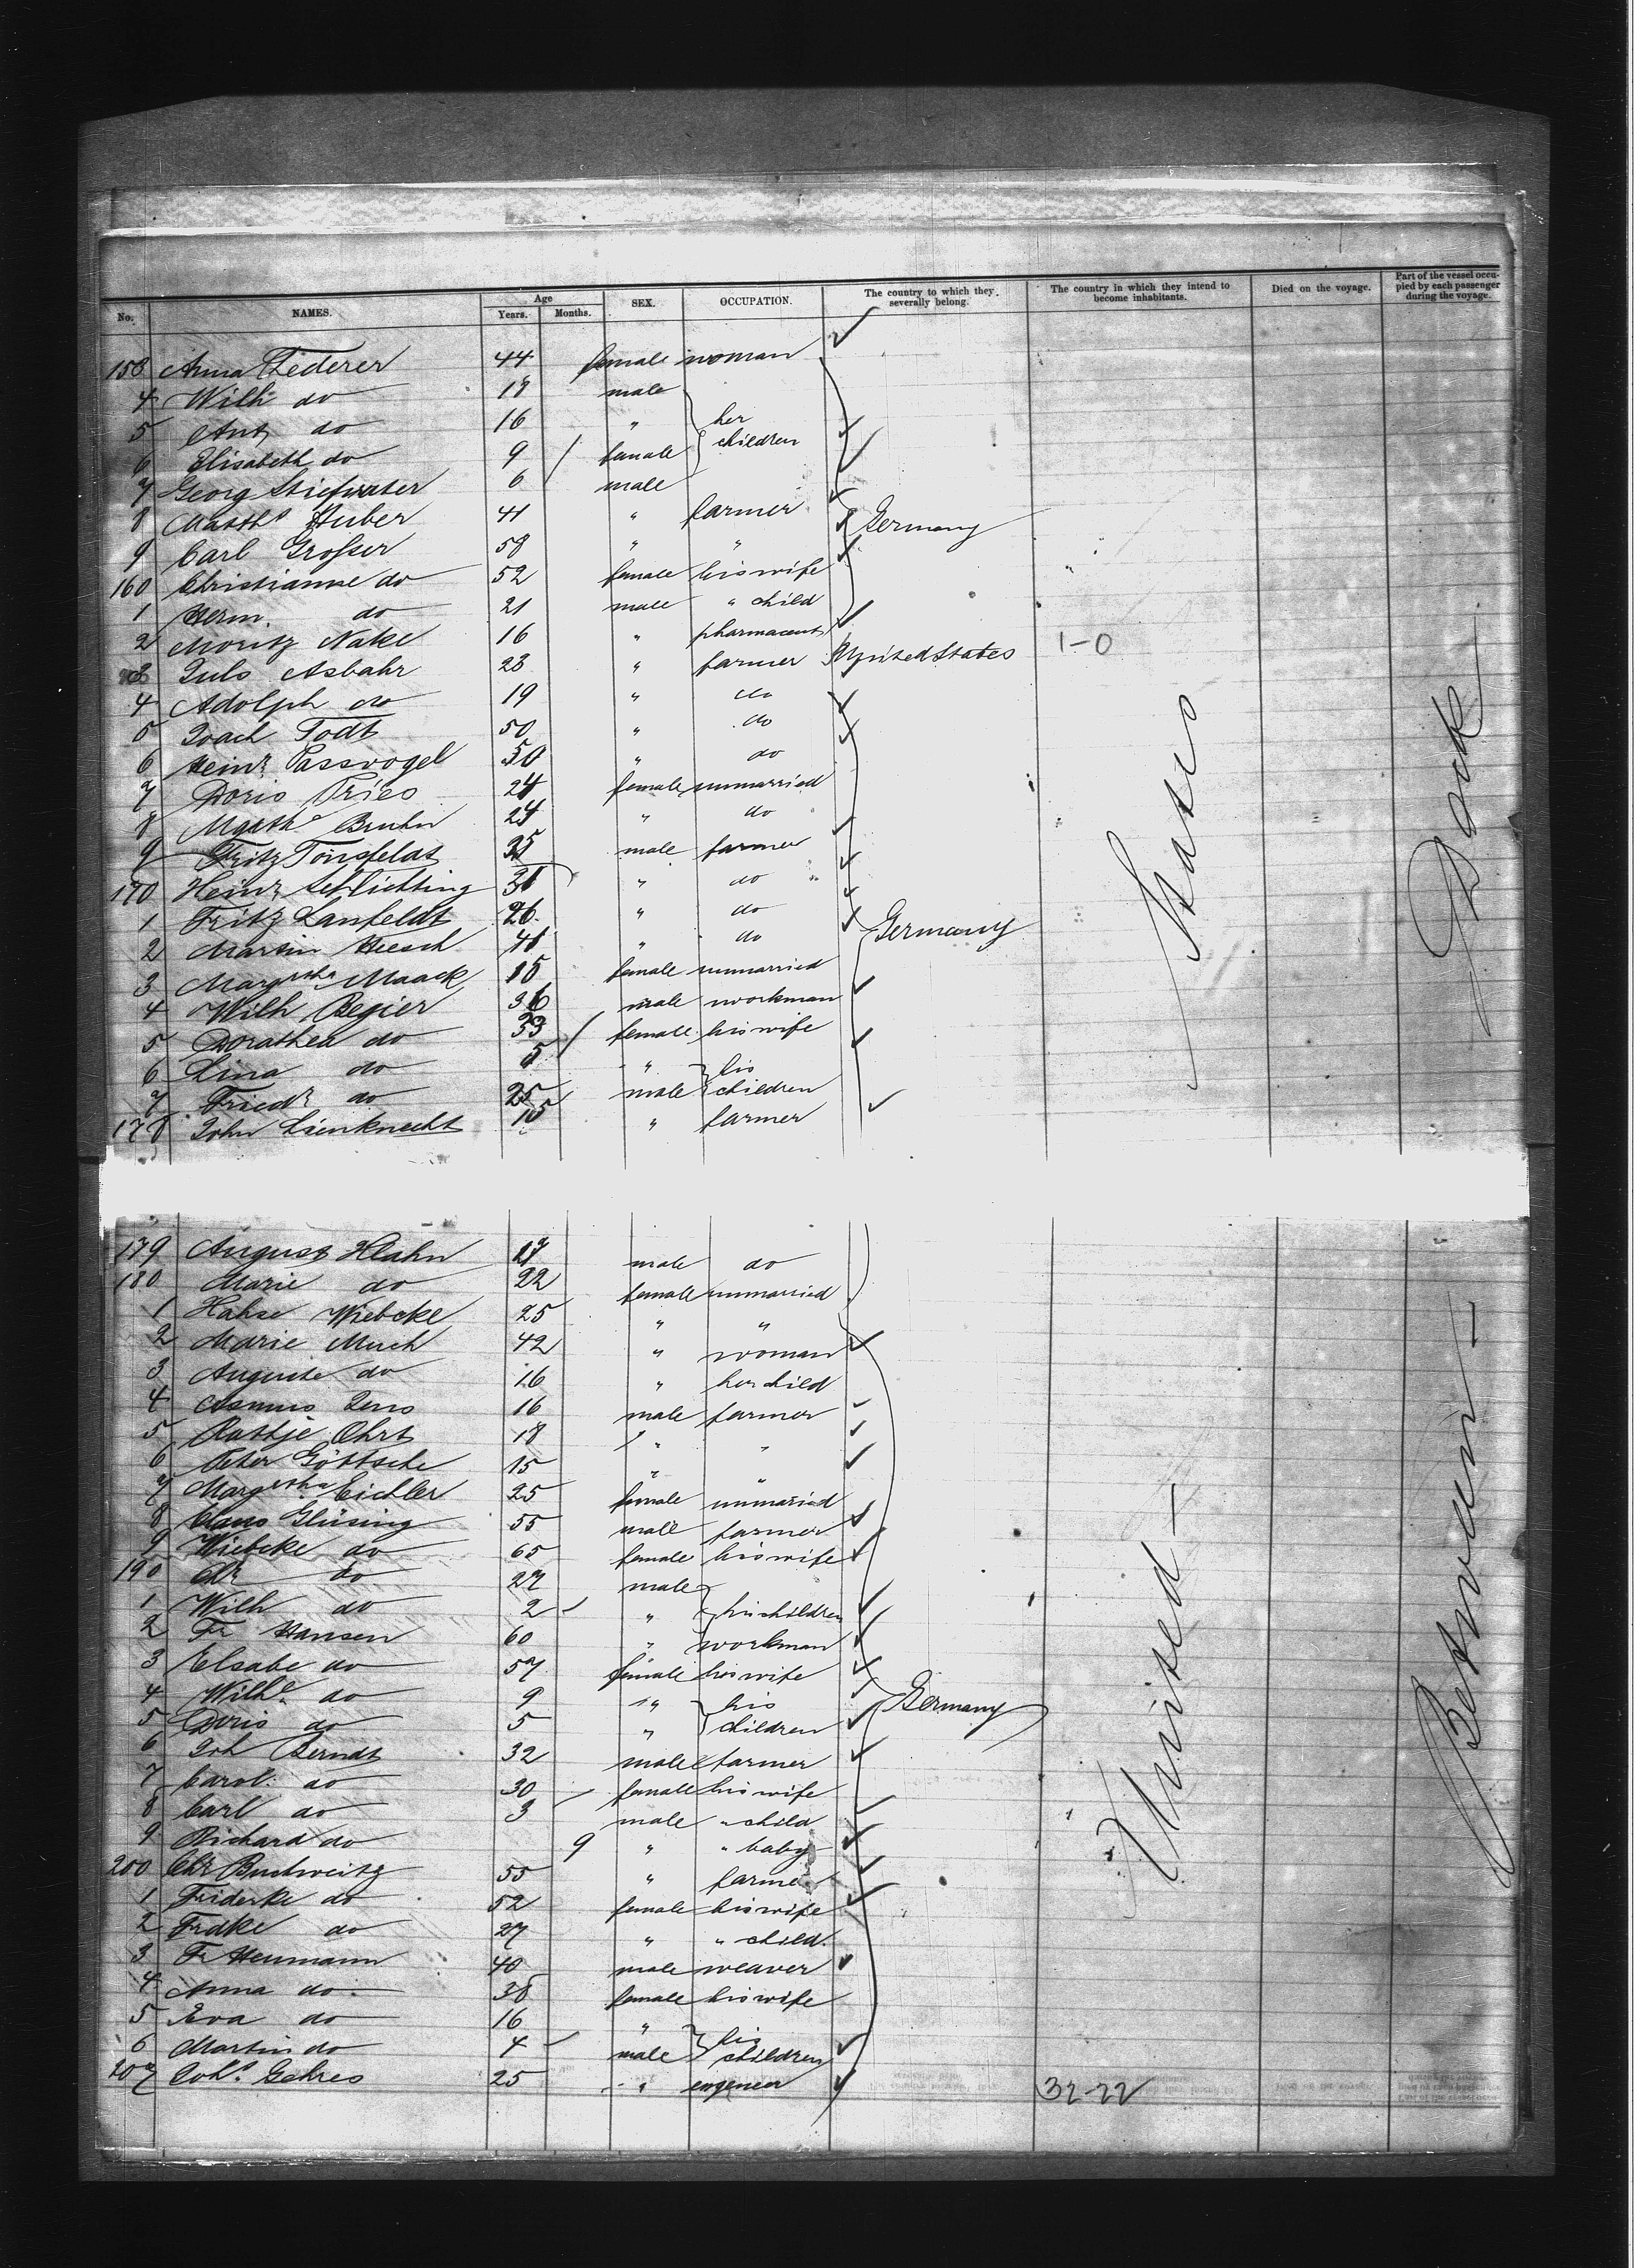 No. NAMES. Age Years. Months. SEX. OCCUPATION. The country to which they severally belong. The country in which they intend to become inhabitants. Died on the voyage. Part of the vessel occupied by each passenger during the voyage.
153 Anna Lederer 44 female woman
4 Wilh do male
5 Ant do 16 " her
6 Elisabeth do 9 female children
7 Georg Stiefvater 6 male
8 Matths Huber 41 " farmer Germany
9 Carl Grosser 58 " "
160 Christianne do 52 female his wife
1 Herm. do 21 male " child
2 Moritz Nake 16 " pharmaceut
3 Juls Asbahr 23 " farmer United States 1-0
4 Adolph do 19 " do
5 Joach Todt 50 " do
6 Heinr Passvogel 50 " do
7 Doris Fries 24 female unmarried
8 Magth Bruhn 24 " do
9 Fritz Tonsfeldt 35 male farmer
170 Heinr Schlichting " do
1 Fritz Lanfeldt 26 " do
2 Martin Heesch 41 " do Germany
3 Margretha Maack 15 female unmarried
4 Wilh Regier 36 male workman
5 Dorathea do 33 female his wife
6 Lina do 5 " his
7 Friedr do male children
178 John Lienknecht " farmer
179 August Hahn male do
180 Marie do 22 female unmarried
1 Wiebcke 25 " "
2 Marie Much 42 " woman
3 Auguste do 16 " her child
4 Asmus Jens 16 male farmer
5 Ohrt 18 " "
6 Peter Göttsche 15 " "
7 Margretha Eichler 25 female unmaried
8 Claus Glüsing 55 male farmer
9 Wiebcke do 65 female his wife
190 do 27 male
1 Wilh do 2 " his children
2 Fr Hansen 60 " workman
3 Elsabe do 57 female his wife
4 Wilhe do 9 " his
5 Doris do 5 " children Germany
6 Joh Berndt 32 male farmer
7 Carol. do 30 female his wife
8 Carl do 3 male " child
9 Richard do 9 " " baby
200 Chr Buchweitz 55 " farmer
1 Friderke do 52 female his wife
2 Frdke do 27 " " child.
3 Fr Heumann 40 male weaver
4 Anna do 38 female his wife
5 Eva do 16 " his
6 Martin do 4 male children
207 Johs Gehres 25 " engeneer 32-22
United States
Between Deck